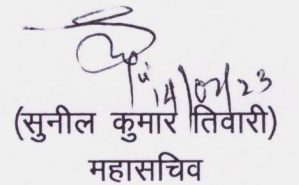 14/02/23
(सुनील कुमार तिवारी)
महासचिव